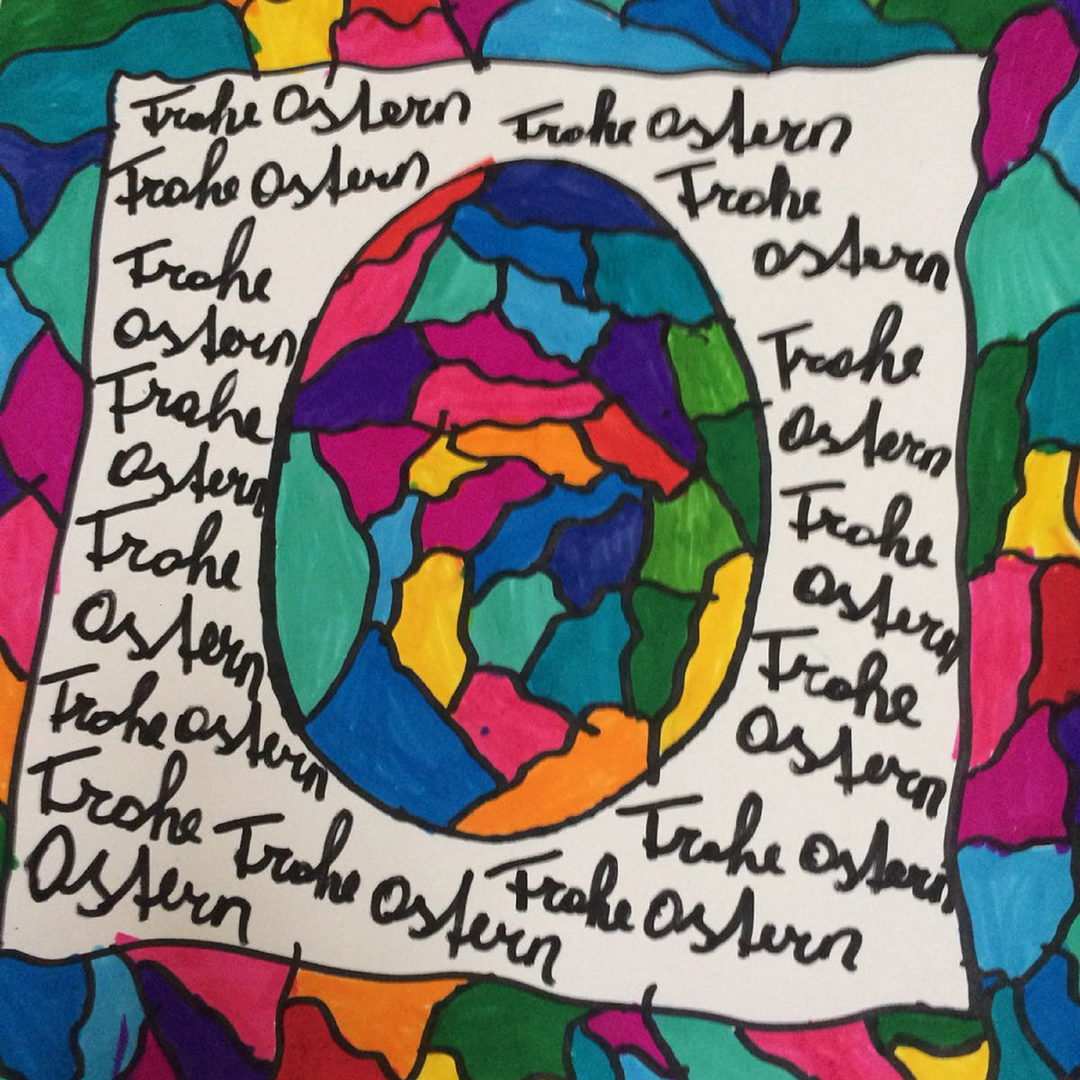 Frohe Ostern
Frohe Ostern
Frohe Ostern
Frohe
Ostern
Frohe
Ostern
Frohe
Ostern
Frohe
Ostern
Frohe
Ostern
Frohe
Ostern
Frohe
Ostern
Frohe
Ostern
Frohe Ostern
Frohe Ostern
Frohe
Ostern
Frohe Ostern
Frohe Ostern